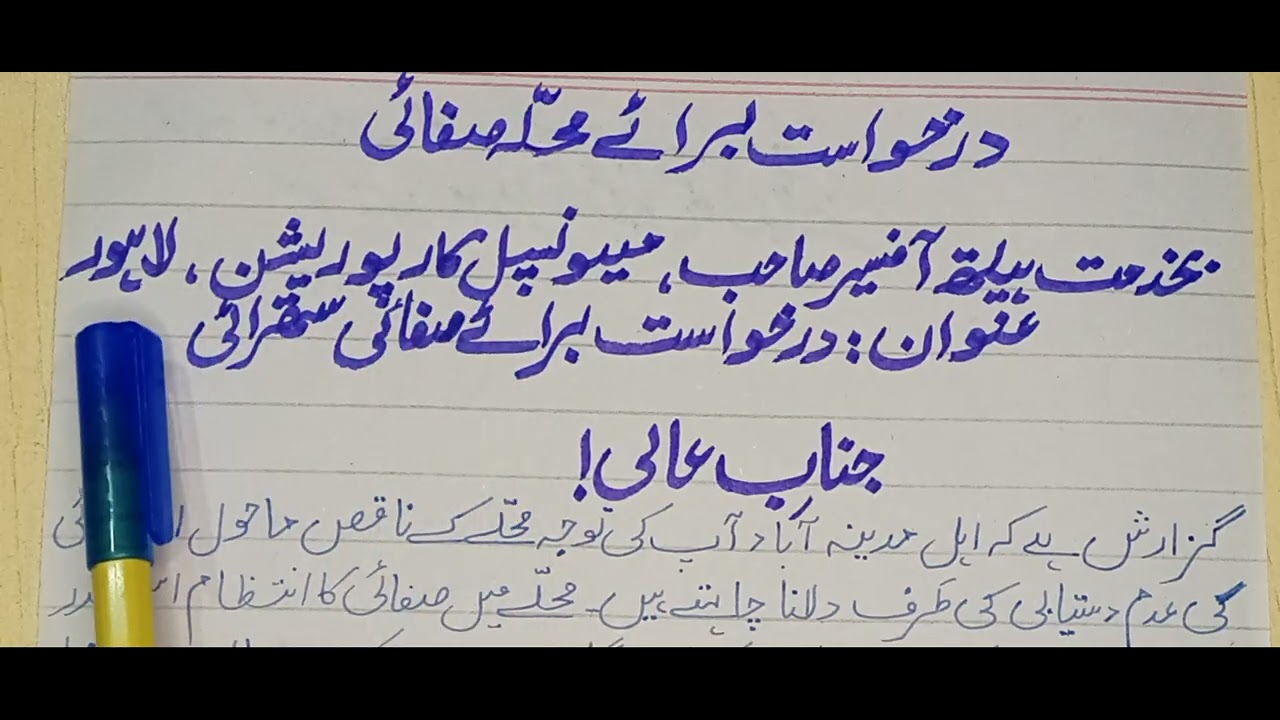 درخواست برائے محلّہ صفائی
بخدمت ہیلتھ آفیسر صاحب، میونسپل کارپوریشن، لاہور
عنوان: درخواست برائے صفائی ستھرائی
جنابِ عالی!
گزارش ہے کہ اہل مدینہ آباد آپ کی توجہ محلّے کے ناقص ماحول
کی عدم دستیابی کی طرف دلانا چاہتے ہیں۔ محلّے میں صفائی کا انتظام